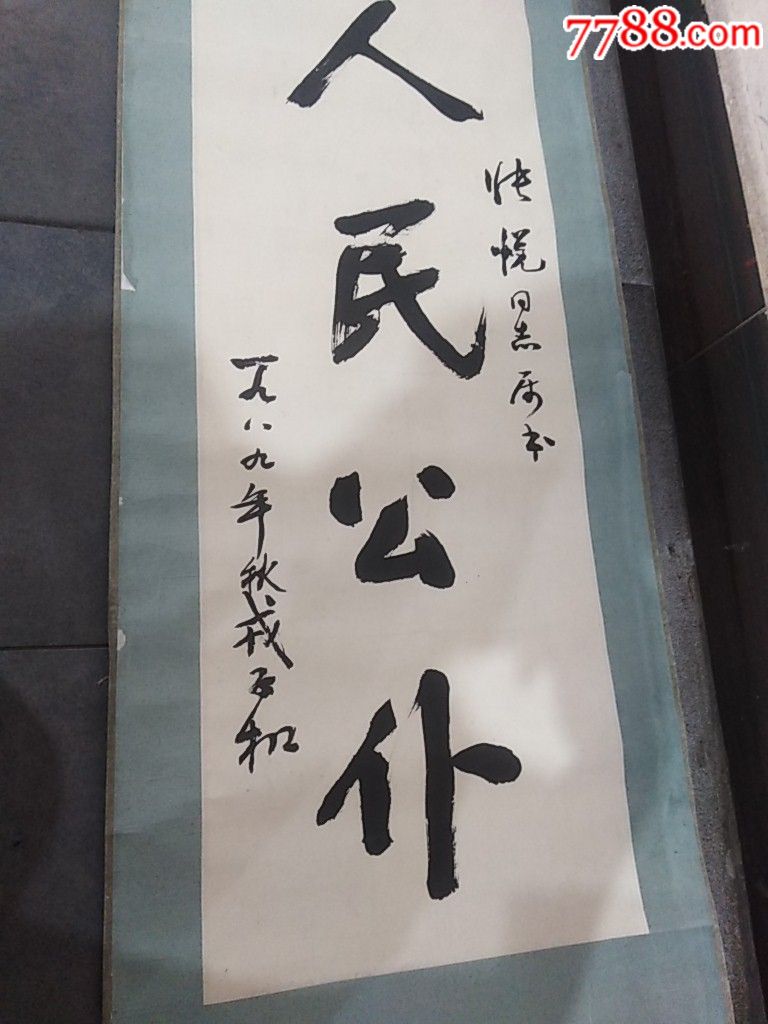 7788.com
人民公仆
悦同志属书
一九八九年秋戎子和